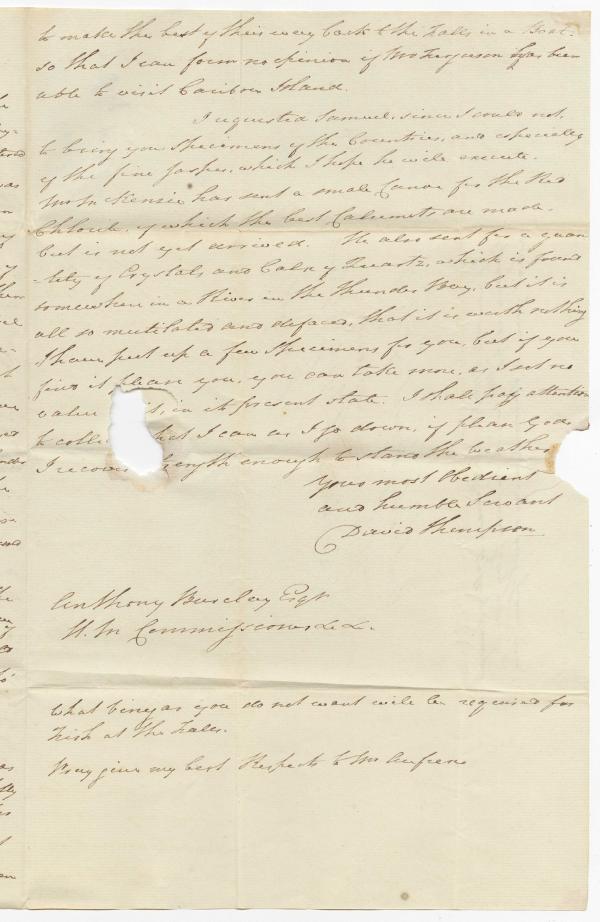 to make the best of their way back to the Falls in a Boat.
so that I can form no opinion if Mr Ferguson has been
able to visit Caribou Island.
I requested Samuel, since I could not,
to bring you Specimens of the Countries, and especially
of the fine Jasper, which I hope he will execute.
Mr McKenzie has sent a small Canoe for the Red
Chlorite, of which the best Calumets are made.
but is not yet arrived. He also sent for a quan
-tity of Crystals and Calx of Quartz, which is found
somewhere in a River in the Thunder Bay, but it is
all so mutilated and defaced, that it is worth nothing
I have put up a few Specimens for you, but if you
find it please you, you can take more, as I set no
value it, in its present state. I shall pay attention
to colle what I can as I go down, if please God
I recover strength enough to stand the weather
Your most Obedient
and humble Servant
David Thompson
Anthony Barclay Esqr
H. M Commissioner &c &c.
What as you do not want will be required for
Fish at the Falls.
Pray give my best Respects to Mr